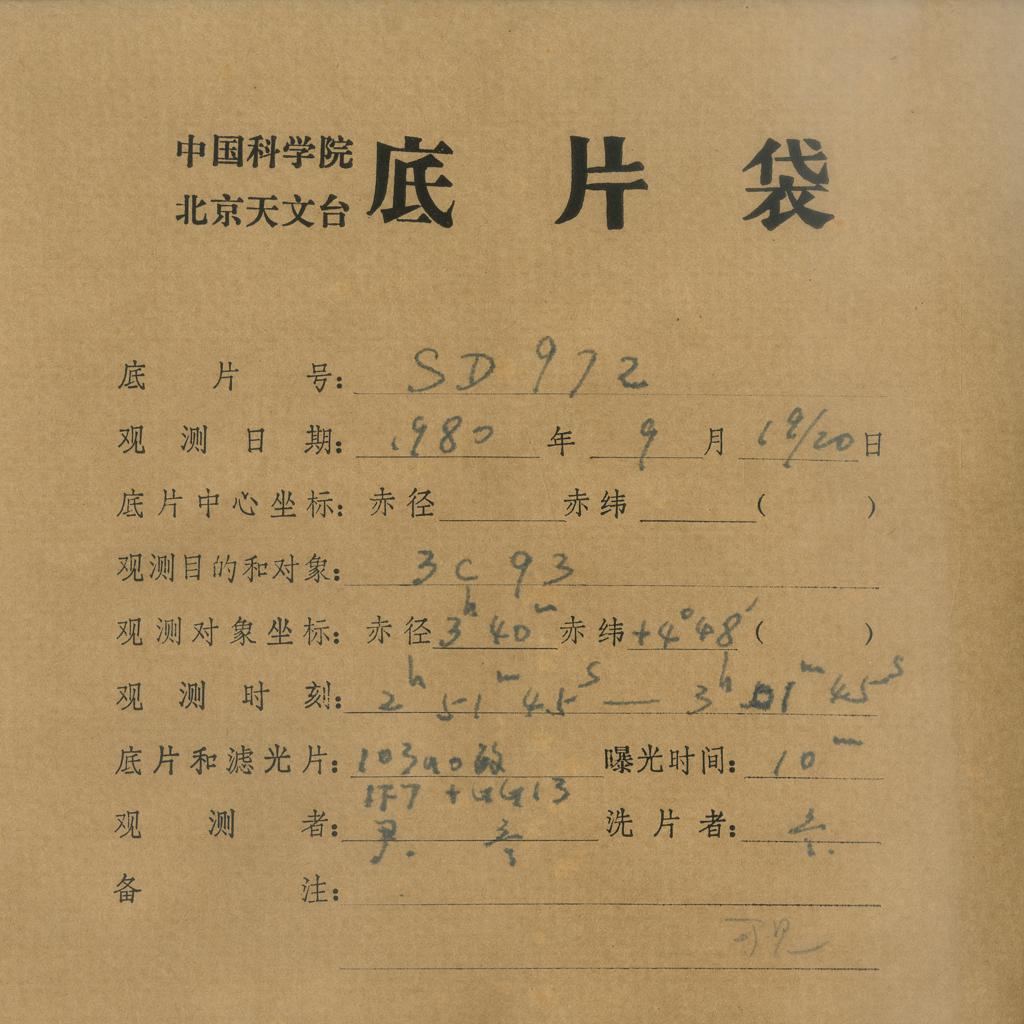 中国科学院
北京天文台
底片袋
底片号: SD 972
观测日期: 1980 年 9 月 19/20 日
底片中心坐标: 赤径 赤纬 ( )
观测目的和对象: 3C 93
观测对象坐标: 赤径 3h 40m 赤纬 +4°48′ ( )
观测时刻: 2h 51m 45s — 3h 01m 45s
底片和滤光片: 103aO敏 曝光时间: 10m
+GG13
观测者: 洗片者:
备注:
可见